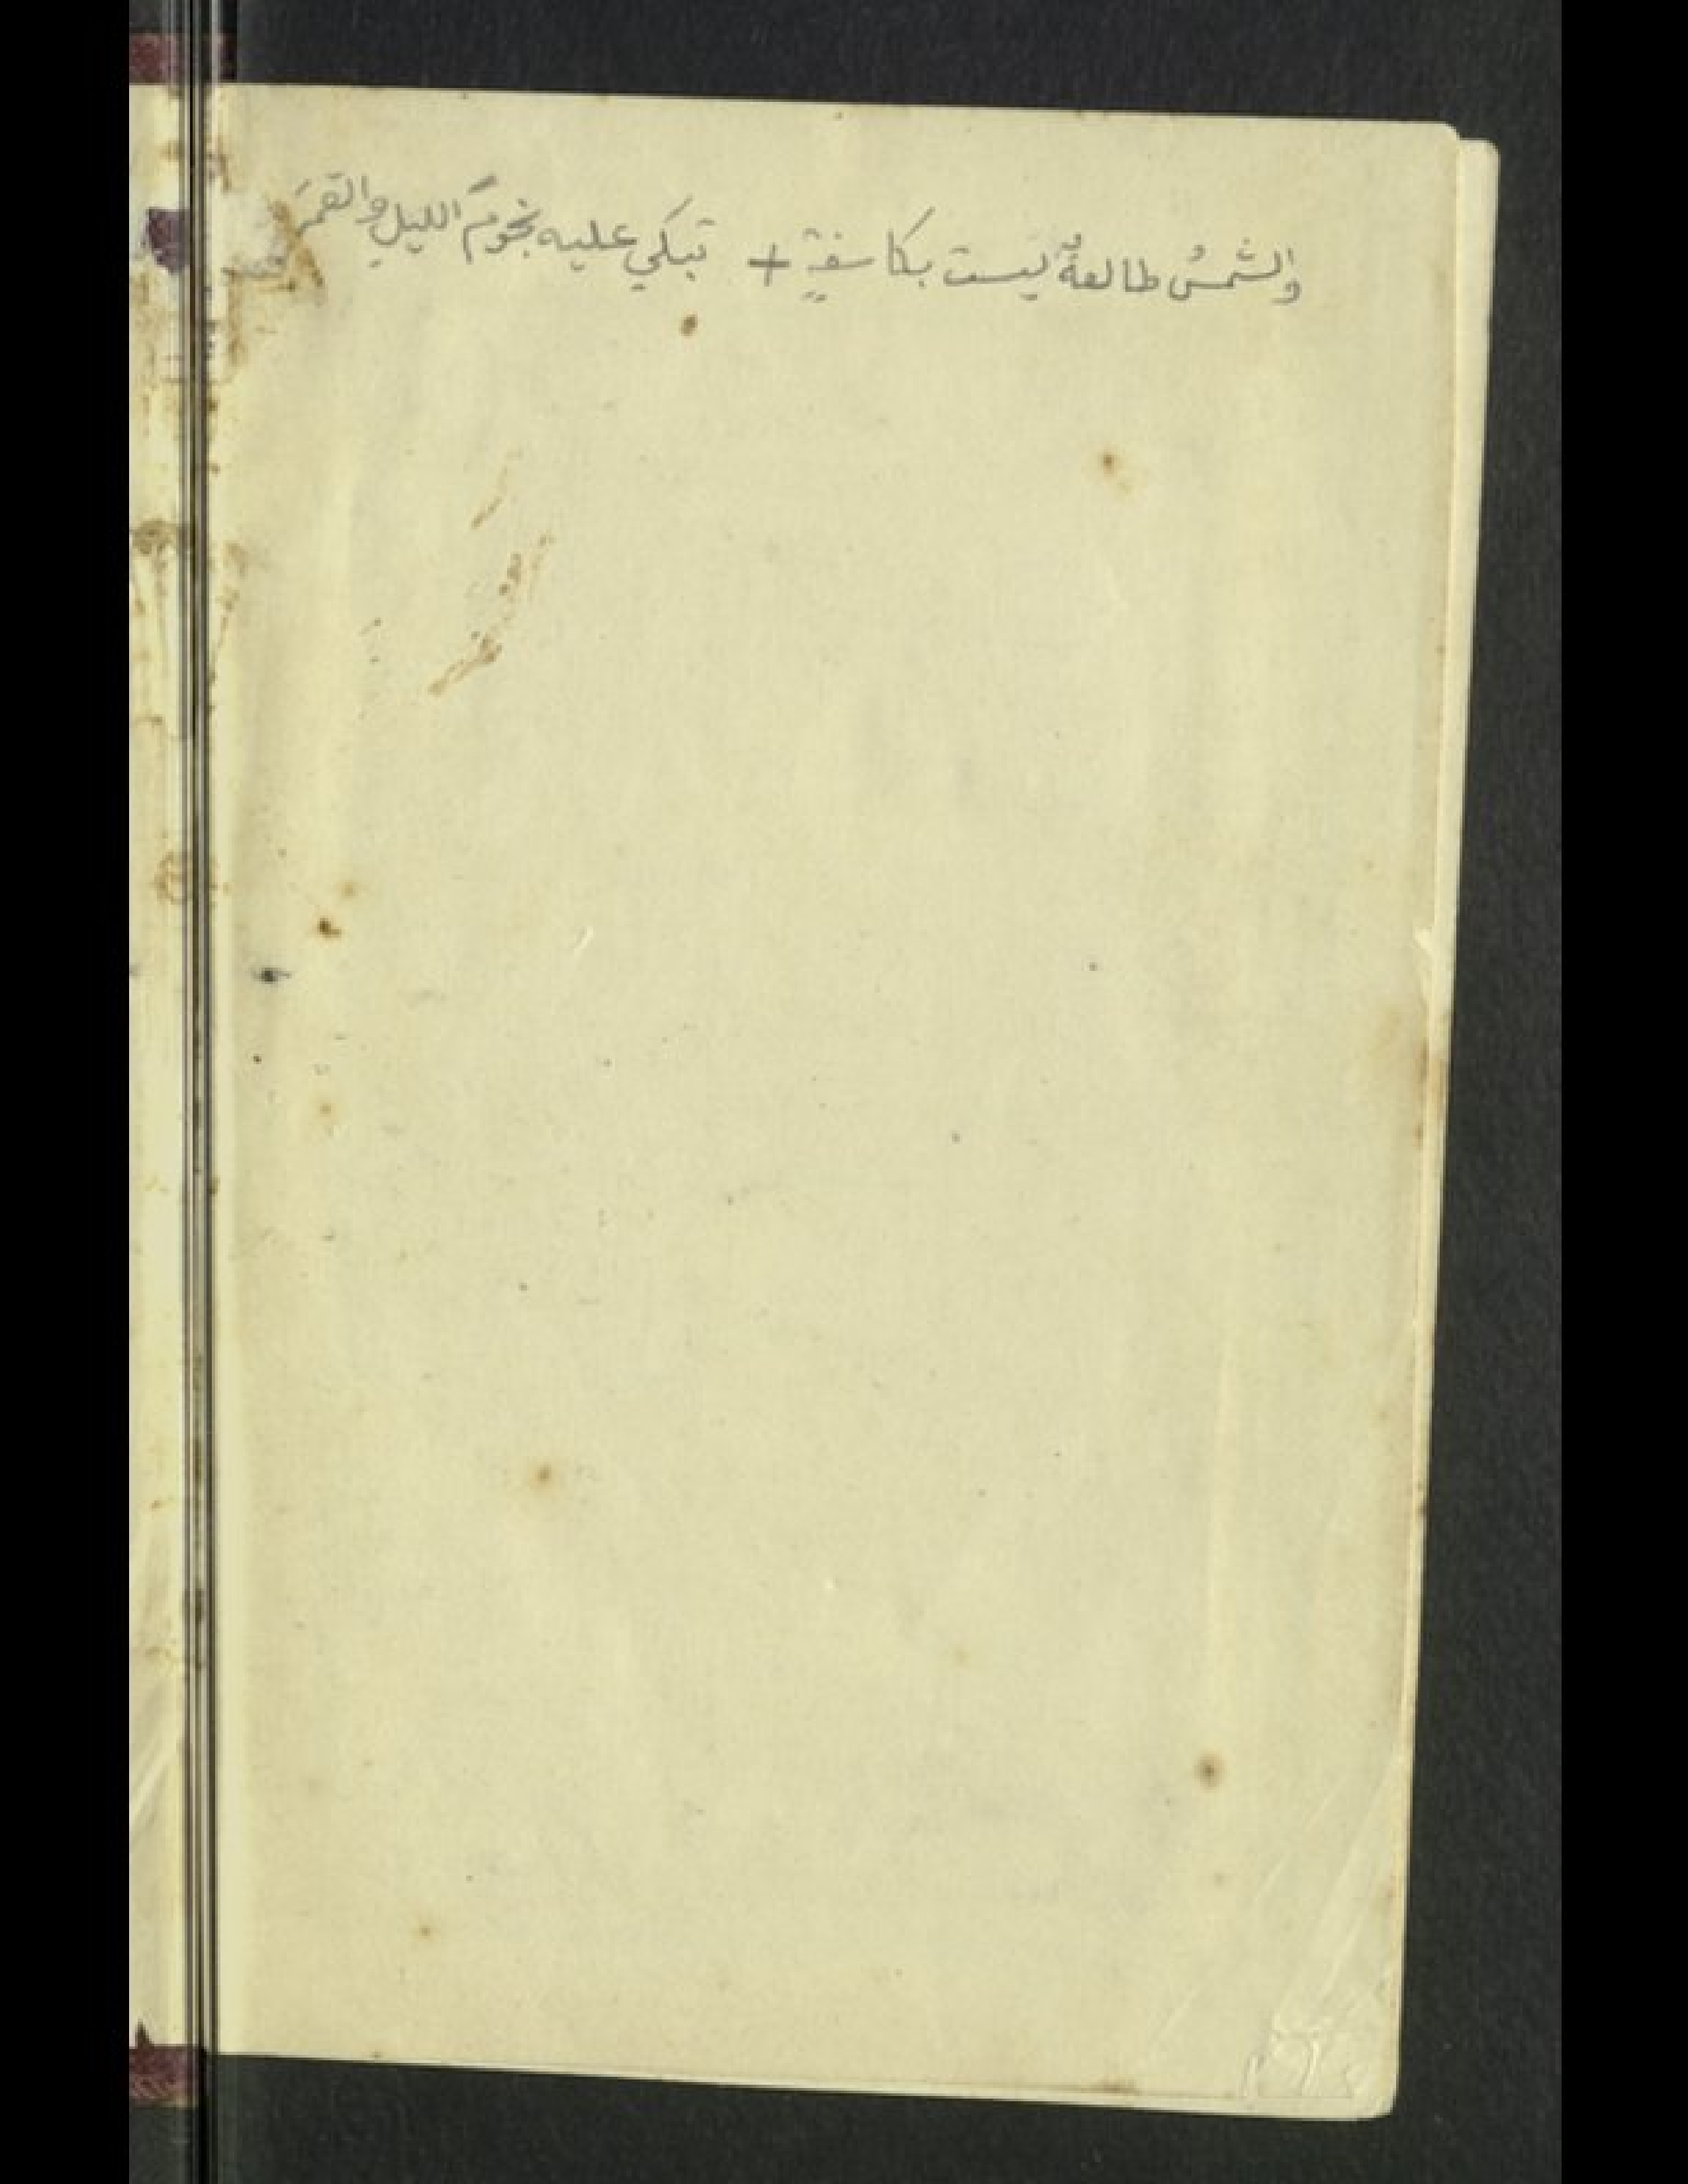 والشمسُ طالعةٌ ليست بكاسفةٍ + تبكي عليه نجومَ الليلِ والقمرَ